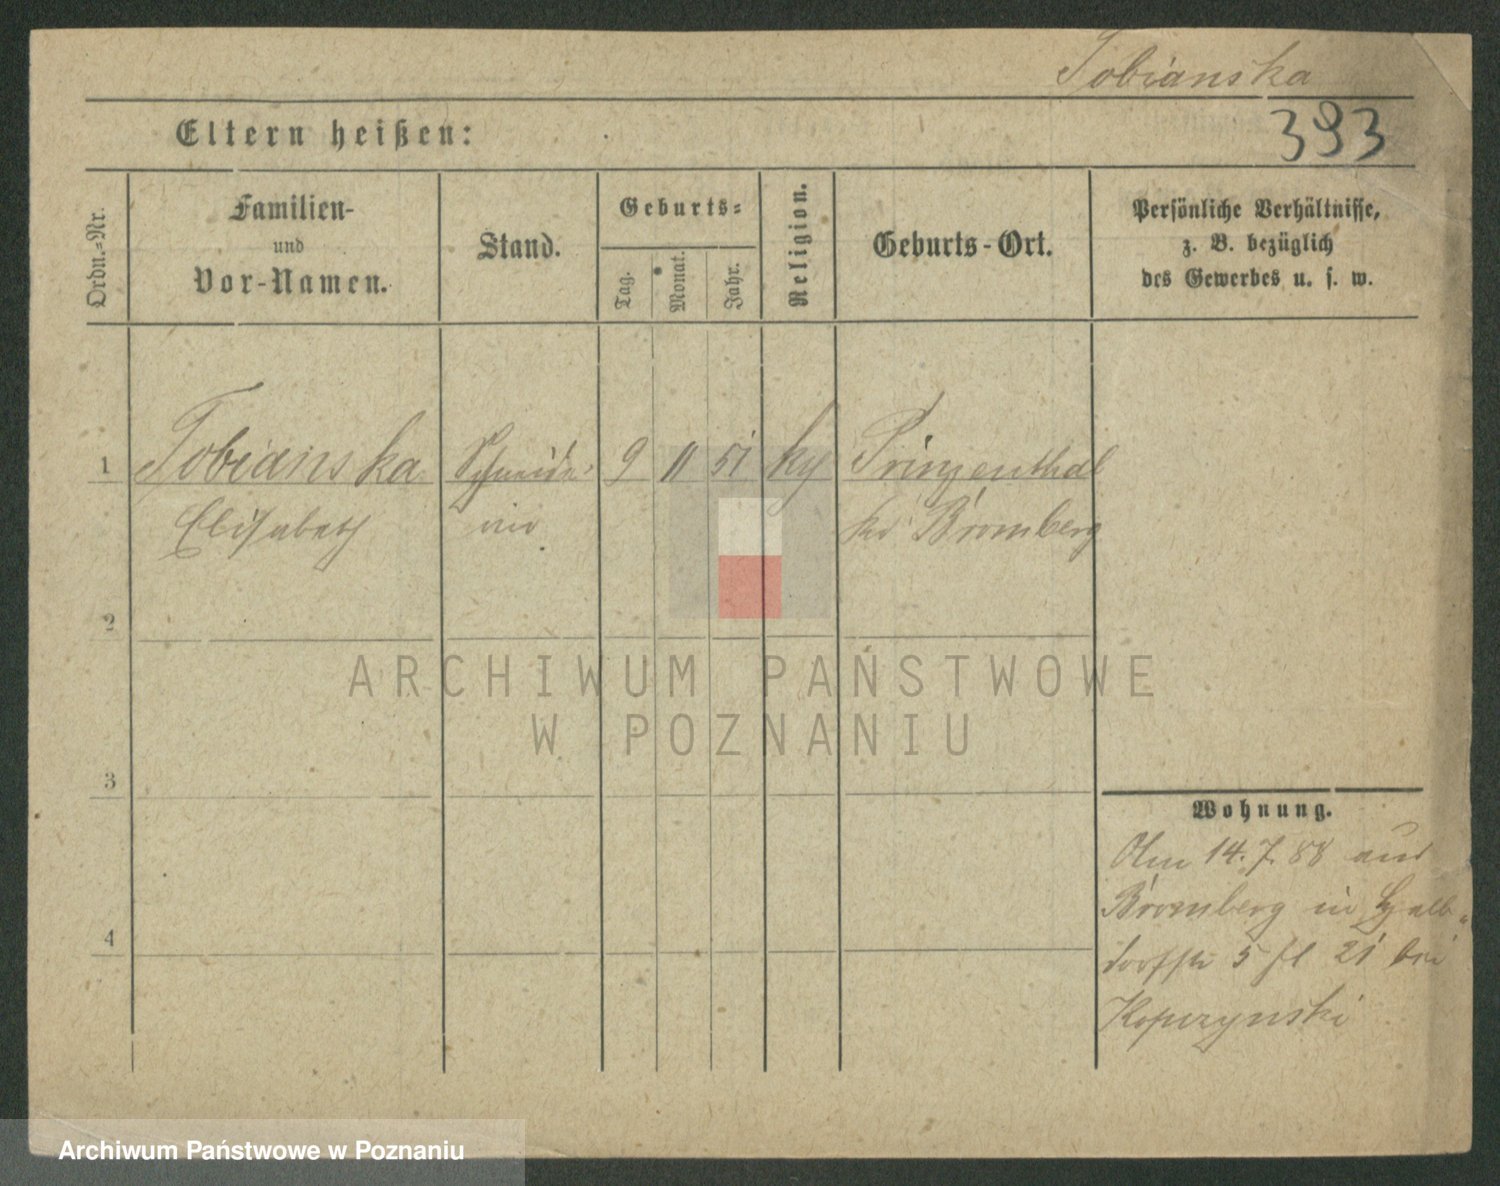 Tobianska
393
Eltern heißen:
Ordn.-Nr.
Familien-
und
Vor-Namen.
Stand.
Geburts-
Tag.
Monat.
Jahr.
Religion.
Geburts-Ort.
Persönliche Verhältnisse,
z. B. bezüglich
des Gewerbes u. s. w.
1 Tobianska Schneide- 9 11 51 Prinzenthal
Elisabeth rin Bromberg
2
3
4
Wohnung.
14. 7. 88 aus
Bromberg in Halb-
dorfstr 5 21 bei
Kopczynski
ARCHIWUM PAŃSTWOWE
W POZNANIU
Archiwum Państwowe w Poznaniu